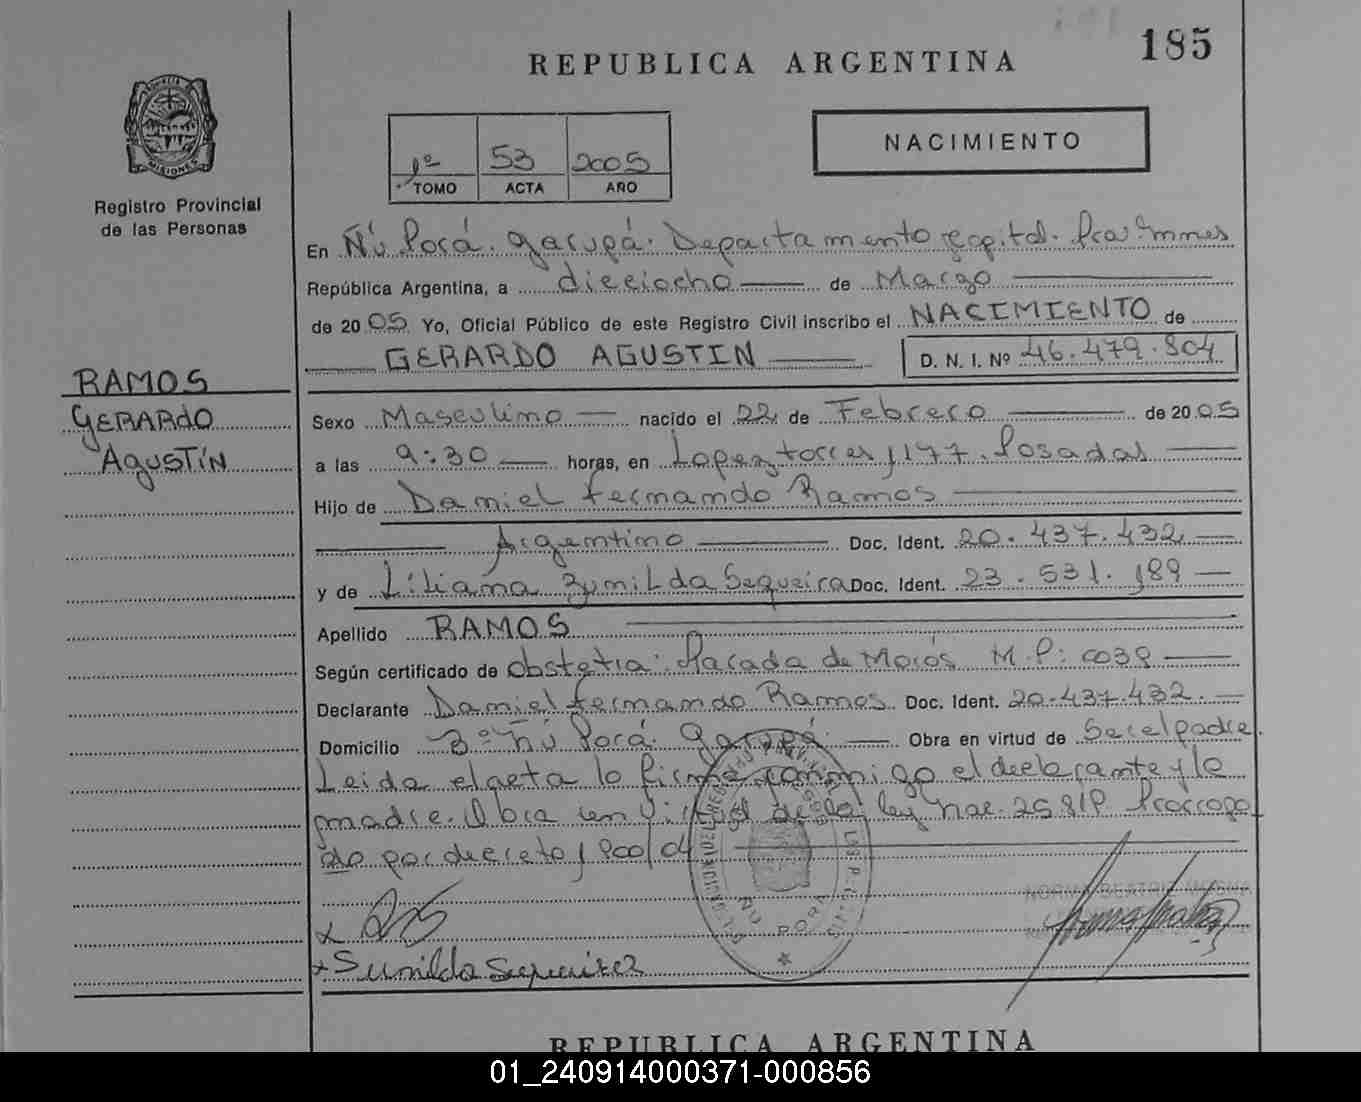 185
REPUBLICA ARGENTINA
NACIMIENTO
MISIONES
Registro Provincial
de las Personas
1º 53 2005
TOMO ACTA AÑO
En Ñú Porá. Garupá. Departamento Capital. Pcia Mnes
República Argentina, a dieciocho de Marzo
de 2005 Yo, Oficial Público de este Registro Civil inscribo el NACIMIENTO de
GERARDO AGUSTIN D. N. I. Nº 46.479.804
RAMOS
GERARDO
AGUSTÍN
Sexo Masculino nacido el 22 de Febrero de 2005
a las 9:30 horas, en Lopez torres 1177. Posadas
Hijo de Daniel Fernando Ramos
Argentino Doc. Ident. 20.437.432
y de Liliana Zunilda Sequeira Doc. Ident. 23.531.189
Apellido RAMOS
Según certificado de obstetra: Macada de Morós M.P: 0039
Declarante Daniel Fernando Ramos Doc. Ident. 20.437.432.
Domicilio Bº Ñú Porá. Garupá Obra en virtud de Ser el padre.
Leida el acta la firma conmigo el declarante y la
madre. Obra en Virtud de la ley nac. 25819 Prorroga
do por decreto 1900/04
NORMA BEATRIZ
NU PORA
Sunilda Sequeira
REPUBLICA ARGENTINA
01_240914000371-000856